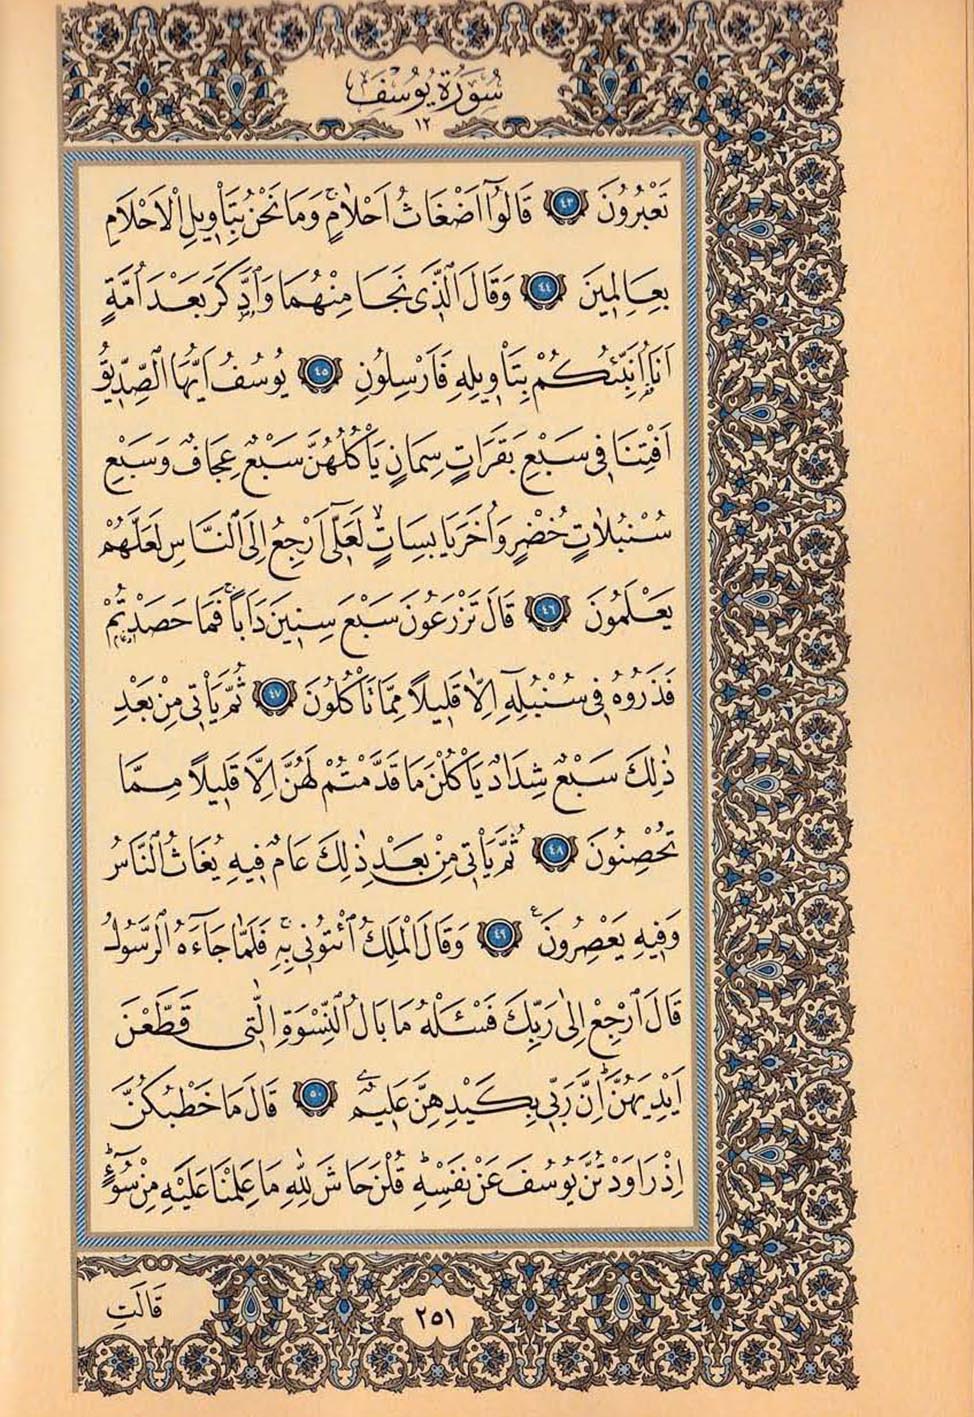 سُورَةُ يُوسُفَ
١٢
تَعْبُرُونَ ٤٣ قَالُٓوا اَضْغَاثُ اَحْلَامٍۚ وَمَا نَحْنُ بِتَأْوٖيلِ الْاَحْلَامِ
بِعَالِمٖينَ ٤٤ وَقَالَ الَّذٖى نَجَا مِنْهُمَا وَادَّكَرَ بَعْدَ اُمَّةٍ
اَنَا۬ اُنَبِّئُكُمْ بِتَأْوٖيلِهٖ فَاَرْسِلُونِ ٤٥ يُوسُفُ اَيُّهَا الصِّدّٖيقُ
اَفْتِنَا فٖى سَبْعِ بَقَرَاتٍ سِمَانٍ يَأْكُلُهُنَّ سَبْعٌ عِجَافٌ وَسَبْعِ
سُنْبُلَاتٍ خُضْرٍ وَاُخَرَ يَابِسَاتٍۙ لَعَلّٖٓى اَرْجِعُ اِلَى النَّاسِ لَعَلَّهُمْ
يَعْلَمُونَ ٤٦ قَالَ تَزْرَعُونَ سَبْعَ سِنٖينَ دَاَبًاۚ فَمَا حَصَدْتُمْ
فَذَرُوهُ فٖى سُنْبُلِهٖٓ اِلَّا قَلٖيلًا مِمَّا تَأْكُلُونَ ٤٧ ثُمَّ يَأْتٖى مِنْ بَعْدِ
ذٰلِكَ سَبْعٌ شِدَادٌ يَأْكُلْنَ مَا قَدَّمْتُمْ لَهُنَّ اِلَّا قَلٖيلًا مِمَّا
تُحْصِنُونَ ٤٨ ثُمَّ يَأْتٖى مِنْ بَعْدِ ذٰلِكَ عَامٌ فٖيهِ يُغَاثُ النَّاسُ
وَفٖيهِ يَعْصِرُونَ ٤٩ وَقَالَ الْمَلِكُ ائْتُونٖى بِهٖۚ فَلَمَّا جَٓاءَهُ الرَّسُولُ
قَالَ ارْجِعْ اِلٰى رَبِّكَ فَسْـَٔلْهُ مَا بَالُ النِّسْوَةِ الّٰتٖى قَطَّعْنَ
اَيْدِيَهُنَّؕ اِنَّ رَبّٖى بِكَيْدِهِنَّ عَلٖيمٌ ٥٠ قَالَ مَا خَطْبُكُنَّ
اِذْ رَاوَدْتُنَّ يُوسُفَ عَنْ نَفْسِهٖؕ قُلْنَ حَاشَ لِلّٰهِ مَا عَلِمْنَا عَلَيْهِ مِنْ سُٓوءٍؕ
قَالَتِ
٢٥١